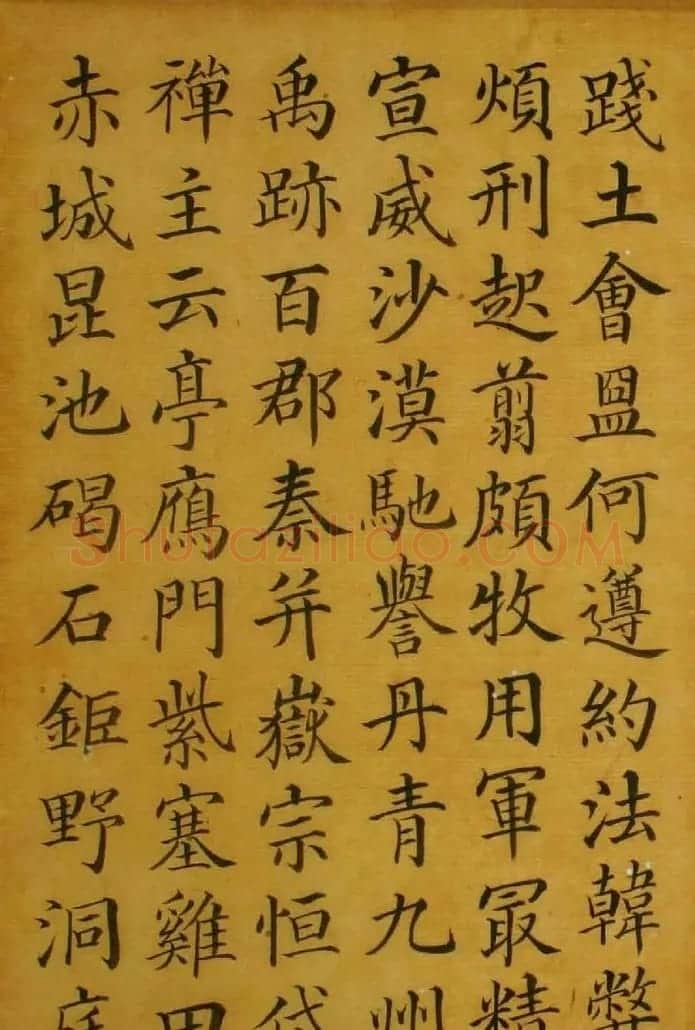 踐土會盟何遵約法韓弊
煩刑起翦頗牧用軍冣精
宣威沙漠馳譽丹青九州
禹跡百郡秦并嶽宗恒岱
禪主云亭鴈門紫塞雞田
赤城昆池碣石鉅野洞庭
Shufaziliao.COM